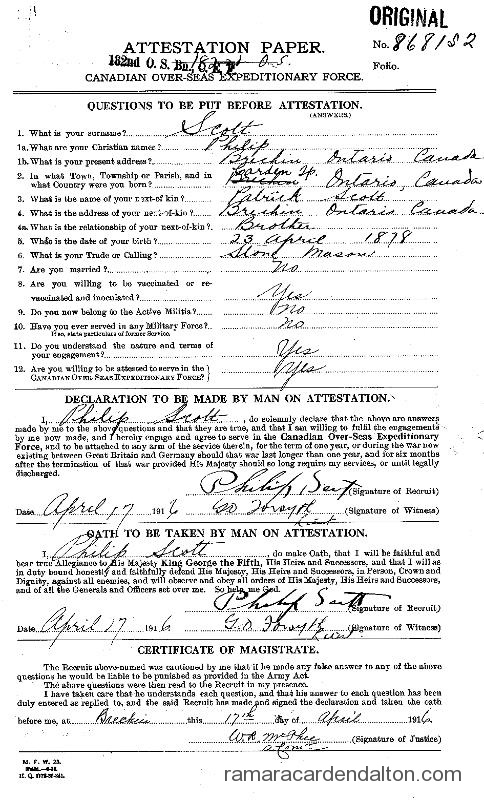 ORIGINAL
ATTESTATION PAPER. No. 868152
182nd O. S. Bn., C. E. F. 182nd O.S. Folio.
CANADIAN OVER-SEAS EXPEDITIONARY FORCE.
QUESTIONS TO BE PUT BEFORE ATTESTATION.
(ANSWERS.)
1. What is your surname? Scott
1a. What are your Christian names? Philip
1b. What is your present address? Brechin Ontario Canada
2. In what Town, Township or Parish, and in Carden Tp.
what Country were you born? Ontario, Canada
3. What is the name of your next-of kin? Patrick Scott
4. What is the address of your next-of-kin? Brechin Ontario Canada
4a. What is the relationship of your next-of-kin? Brother
5. What is the date of your birth? 23 April 1878
6. What is your Trade or Calling? Stone Mason
7. Are you married? No
8. Are you willing to be vaccinated or re-
vaccinated and inoculated? Yes
9. Do you now belong to the Active Militia? No
10. Have you ever served in any Military Force? No
If so, state particulars of former Service.
11. Do you understand the nature and terms of
your engagement? Yes
12. Are you willing to be attested to serve in the
CANADIAN OVER-SEAS EXPEDITIONARY FORCE? Yes
DECLARATION TO BE MADE BY MAN ON ATTESTATION.
I, Philip Scott, do solemnly declare that the above are answers
made by me to the above questions and that they are true, and that I am willing to fulfil the engagements
by me now made, and I hereby engage and agree to serve in the Canadian Over-Seas Expeditionary
Force, and to be attached to any arm of the service therein, for the term of one year, or during the war now
existing between Great Britain and Germany should that war last longer than one year, and for six months
after the termination of that war provided His Majesty should so long require my services, or until legally
discharged.
Philip Scott (Signature of Recruit)
Date April 17 1916 GO Forsyth (Signature of Witness)
Lieut
OATH TO BE TAKEN BY MAN ON ATTESTATION.
I, Philip Scott, do make Oath, that I will be faithful and
bear true Allegiance to His Majesty King George the Fifth, His Heirs and Successors, and that I will as
in duty bound honestly and faithfully defend His Majesty, His Heirs and Successors, in Person, Crown and
Dignity, against all enemies, and will observe and obey all orders of His Majesty, His Heirs and Successors,
and of all the Generals and Officers set over me. So help me God.
Philip Scott (Signature of Recruit)
Date April 17 1916 G.O Forsyth Lieut (Signature of Witness)
CERTIFICATE OF MAGISTRATE.
The Recruit above-named was cautioned by me that if he made any false answer to any of the above
questions he would be liable to be punished as provided in the Army Act.
The above questions were then read to the Recruit in my presence.
I have taken care that he understands each question, and that his answer to each question has
been duly entered as replied to, and the said Recruit has made and signed the declaration and taken the oath
before me, at Brechin this 17th day of April 1916
W.R. McPhee (Signature of Justice)
M. F. W. 23.
ramaracardendalton.com